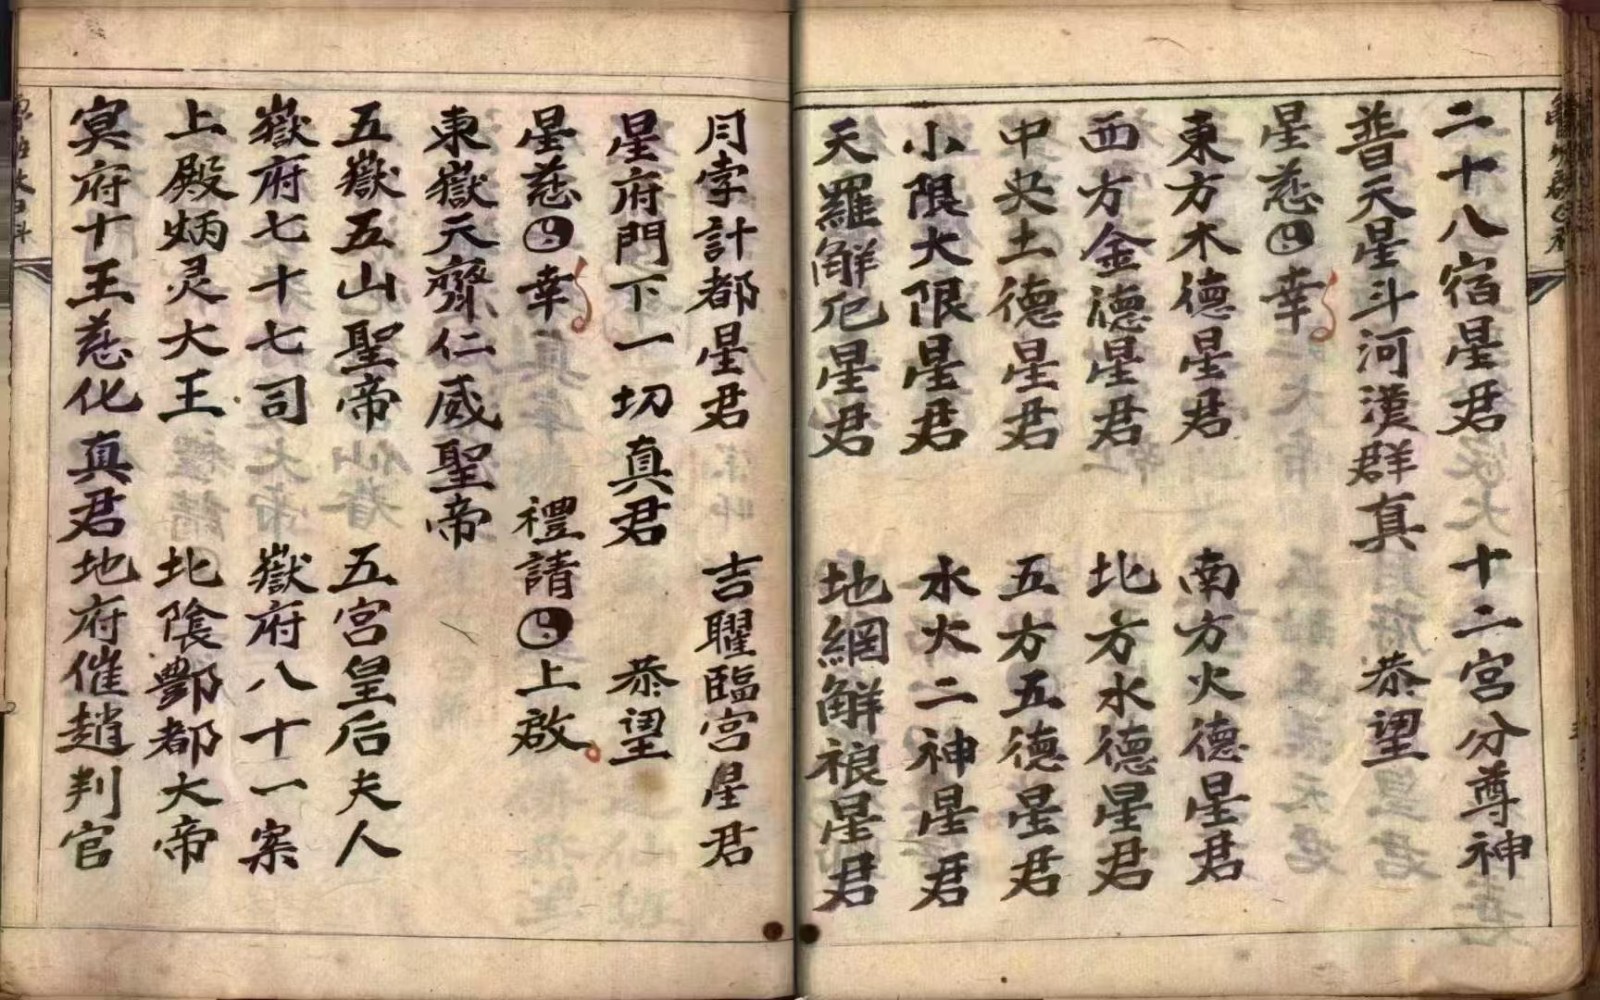 二十八宿星君 十二宮分尊神
普天星斗河漢群真 恭望
星慈 幸
東方木德星君 南方火德星君
西方金德星君 北方水德星君
中央土德星君 五方五德星君
小限大限星君 水火二神星君
天羅解厄星君 地網解𥘵星君
月孛計都星君 吉曜臨宮星君
星府門下一切真君 恭望
星慈 幸 禮請 上啟
東嶽天齊仁威聖帝
五嶽五山聖帝 五宮皇后夫人
嶽府七十七司 嶽府八十一案
上殿炳灵大王 北陰酆都大帝
冥府十王慈化真君 地府催趙判官